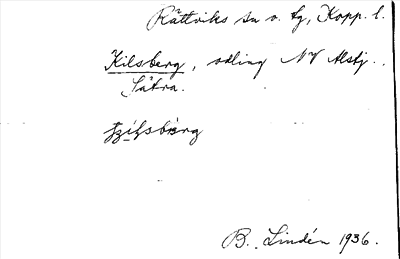 Rättviks sn o. tg, Kopp. l.
Kilsberg, odling NV Alsbj..
Sätra.
B. Lindén 1936.